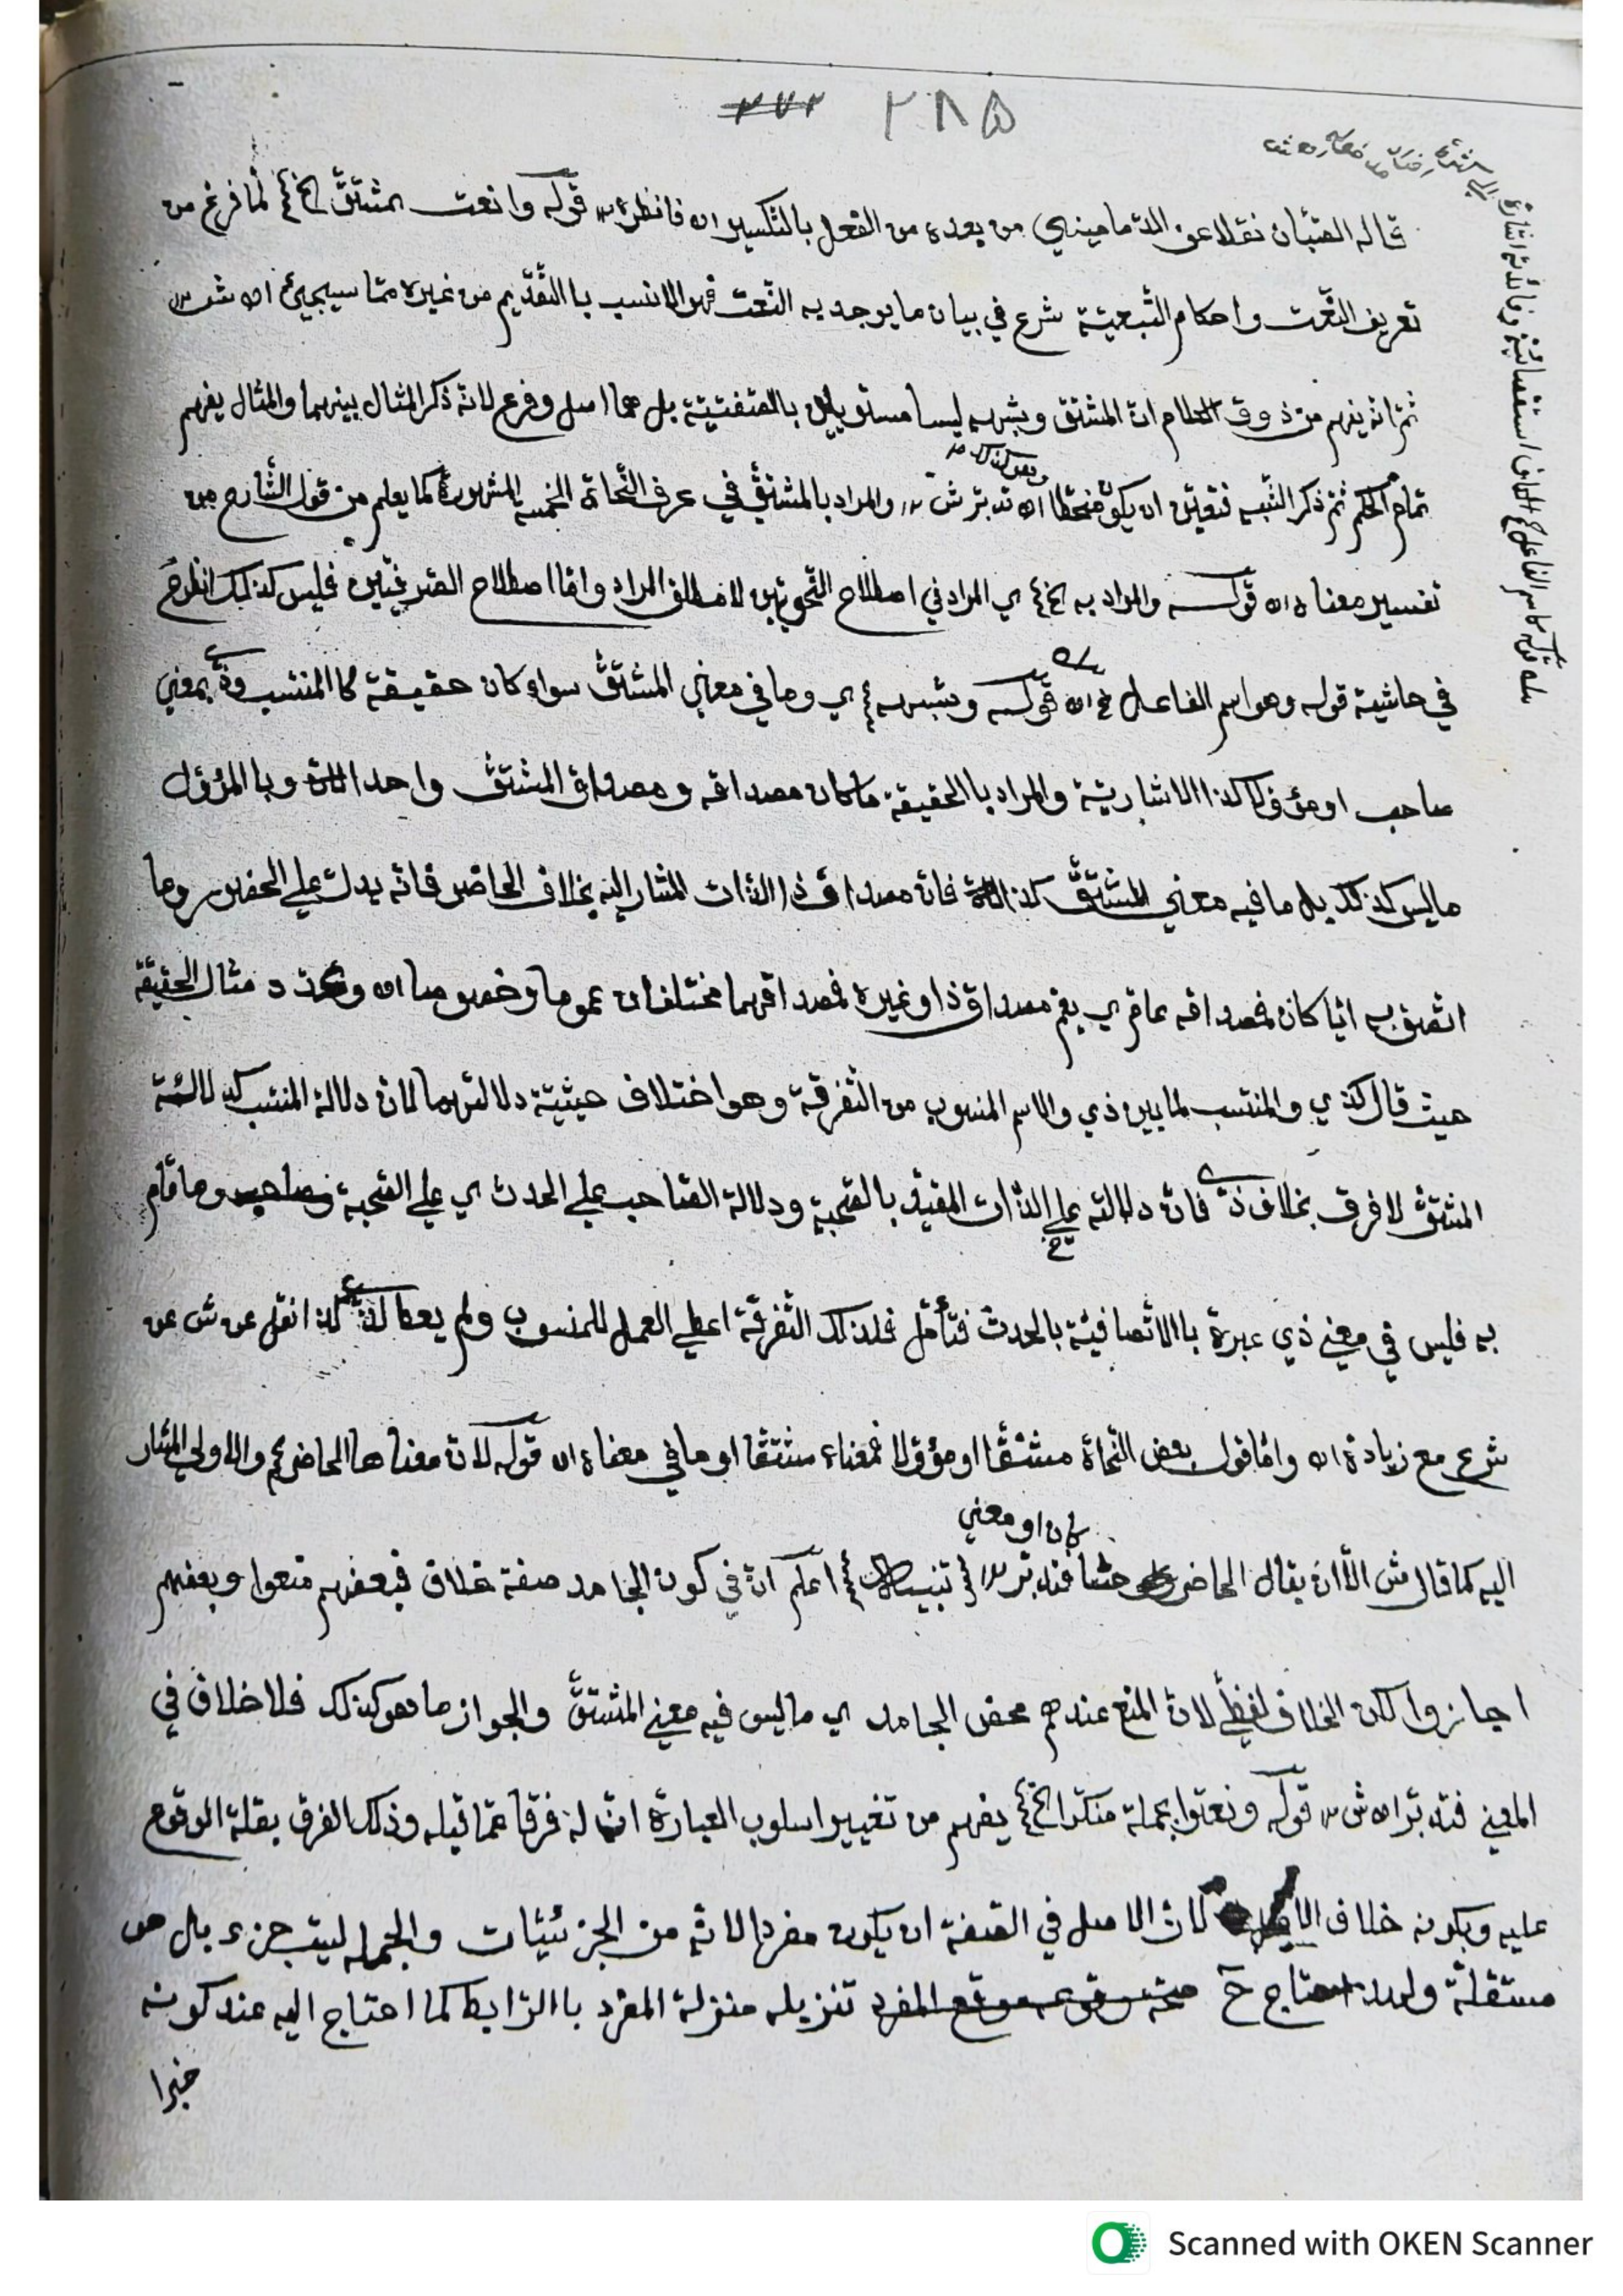 ٢٨٥
قاله الصبّان نقلا عن الدّماميني من بعده من الفعل بالتكسير اه فانظره قوله وانعت بمشتقّ الخ لمّا فرغ من
تعريف النّعت واحكام التّبعيّة شرع في بيان ما يوجد به النّعت فهو الانسب باالتّقديم من غيره ممّا سيجيئ اه ش
ثمّ انه يفهم من ذوق الكلام انّ المشتق وشبهه ليسا مستويين بل هما اصل وفرع لانّه ذكر المثال بينهما والمثال يفهم
تمام الحكم ثمّ ذكر الشّبه فتعيّن ان يكون اه تدبّر ش والمراد بالمشتقّ في عرف النّحاة الخمسه المشهورة كما يعلم من قول الشّارح من
تفسير معناه اه قوله والمراد به الخ ي المراد في اصطلاح النّحويّين لا مطلق المراد وامّا اصطلاح الصّرفيّين فليس كذلك انظر ح
في حاشية قوله وهو اسم الفاعل الخ اه قوله وشبهه ي وما في معني المشتقّ سواء كان حقيقة كا المنتسب وذي بمعني
صاحب او مؤوّلا كذا الاشاريّة والمراد باالحقيقة ما كان مصداقه ومصداق المشتقّ واحدا وباالمؤوّل
ما ليس كذلك بل ما فيه معني المشتقّ كذا فانّ مصداق ذا الذّات المشار اليه بخلاف الحاضر فانّه يدلّ علي الحضور وما
اتّصف به ايّا كان فمصداقه عامّ ي يعم مصداق ذا وغيره فمصداقهما مختلفان عموما وخصوصا اه وتعدّد مثال الحقيقة
حيث قال كذي والمنتسب لما بين ذي والاسم المنسوب من التّفرقة وهو اختلاف حيثيّة دلالتهما لانّ دلالة المنتسب كدلالة
المشتقّ لا فرق بخلاف ذي فانّ دلالته علي الذّات المقيّد بالصّحبة ودلالة الصّاحب علي الحدث ي علي الصّحبة وما قام
به فليس في معني ذي عبرة باالاتّصافيّة بالحدث فتأمّل فلذلك التّفرقة اعطي العمل للمنسوب ولم يعط لذي كذا نقل عن ش عن
شرع مع زيادة اه وامّا قول بعض النّحاة مشتقّا او مؤوّلا فمعناه مشتقّا او ما في معناه اه قوله لانّ معناها الحاضر الخ والاولي المشار
اليه كما قال ش الّا ان يقال الحاضر حسّا كان او معني فتدبّر تنبيه اعلم انّ في كون الجامد صفة خلاف فبعضهم منعوا وبعضهم
اجازوا لكن الخلاف لفظيّ لانّ المنع عندهم محض الجامد ي ما ليس فيه معني المشتقّ والجواز ما هو كذلك فلا خلاف في
المعني فتدبّر اه ش قوله ونعتوا بجملة منكّرا الخ يفهم من تغيير اسلوب العبارة انّ له فرقا عمّا قبله وذلك الفرق بقلة الوقوع
عليه وبكونه خلاف لانّ الاصل في الصّفة ان يكون مفردا لانّه من الجزئيّات والجملة ليست جزء بل هي
مستقلّة ولهذا احتاج ح صحّة وقوعه موقع المفرد تنزيله منزلة المفرد باالرّابط كما احتاج اليه عند كونه
خبرا
Scanned with OKEN Scanner